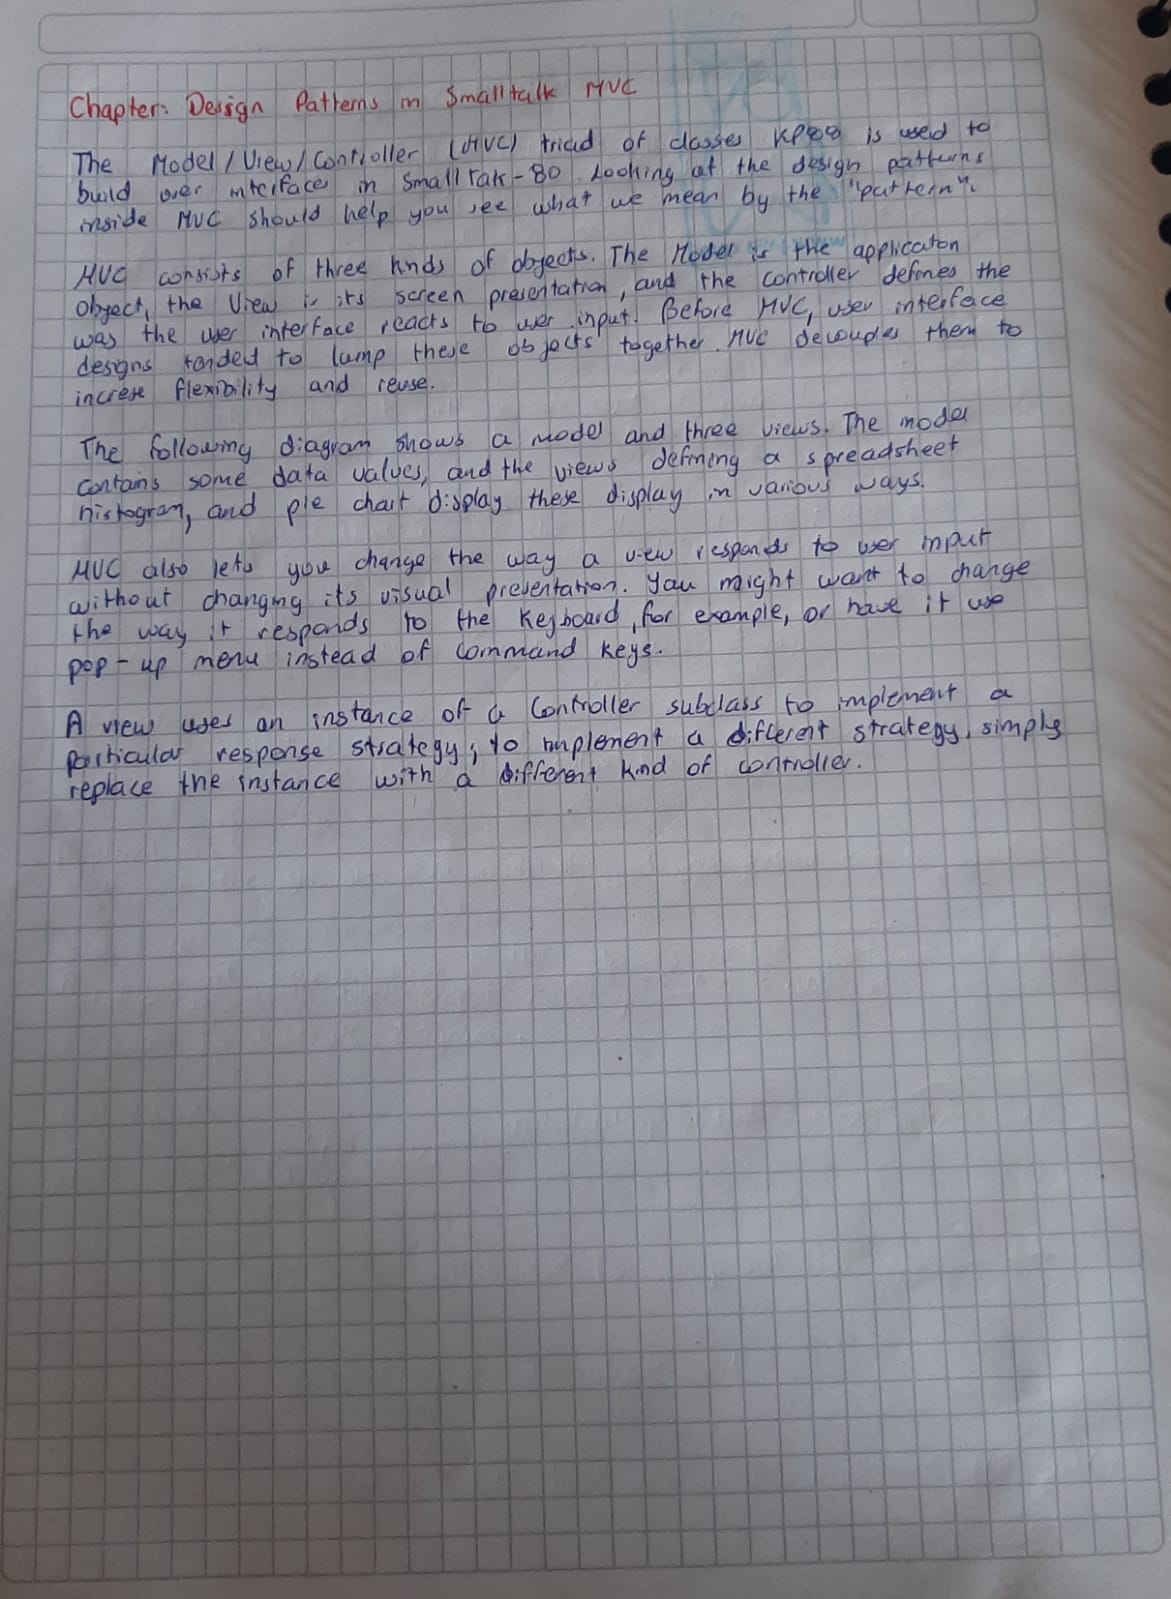 Chapter: Design Patterns in Smalltalk MVC
The Model/View/Controller (MVC) triad of classes KP88 is used to
build over interfaces in Smalltak-80. Looking at the design patterns
inside MVC should help you see what we mean by the "pattern".
MVC consists of three kinds of objects. The Model is the applicaton
object, the View is its screen presentation, and the controller defines the
was the user interface reacts to user input. Before MVC, user interface
designs tended to lump these objects together. MVC decouples them to
increse flexibility and reuse.
The following diagram shows a model and three views. The model
contains some data values, and the views defining a spreadsheet
histogram, and pie chart display these display in various ways.
MVC also lets you change the way a view responds to user input
without changing its visual presentation. You might want to change
the way it responds to the keyboard, for example, or have it use
pop-up menu instead of command keys.
A view uses an instance of a Controller subclass to implement a
particular response strategy; to implement a different strategy, simply
replace the instance with a different kind of controller.